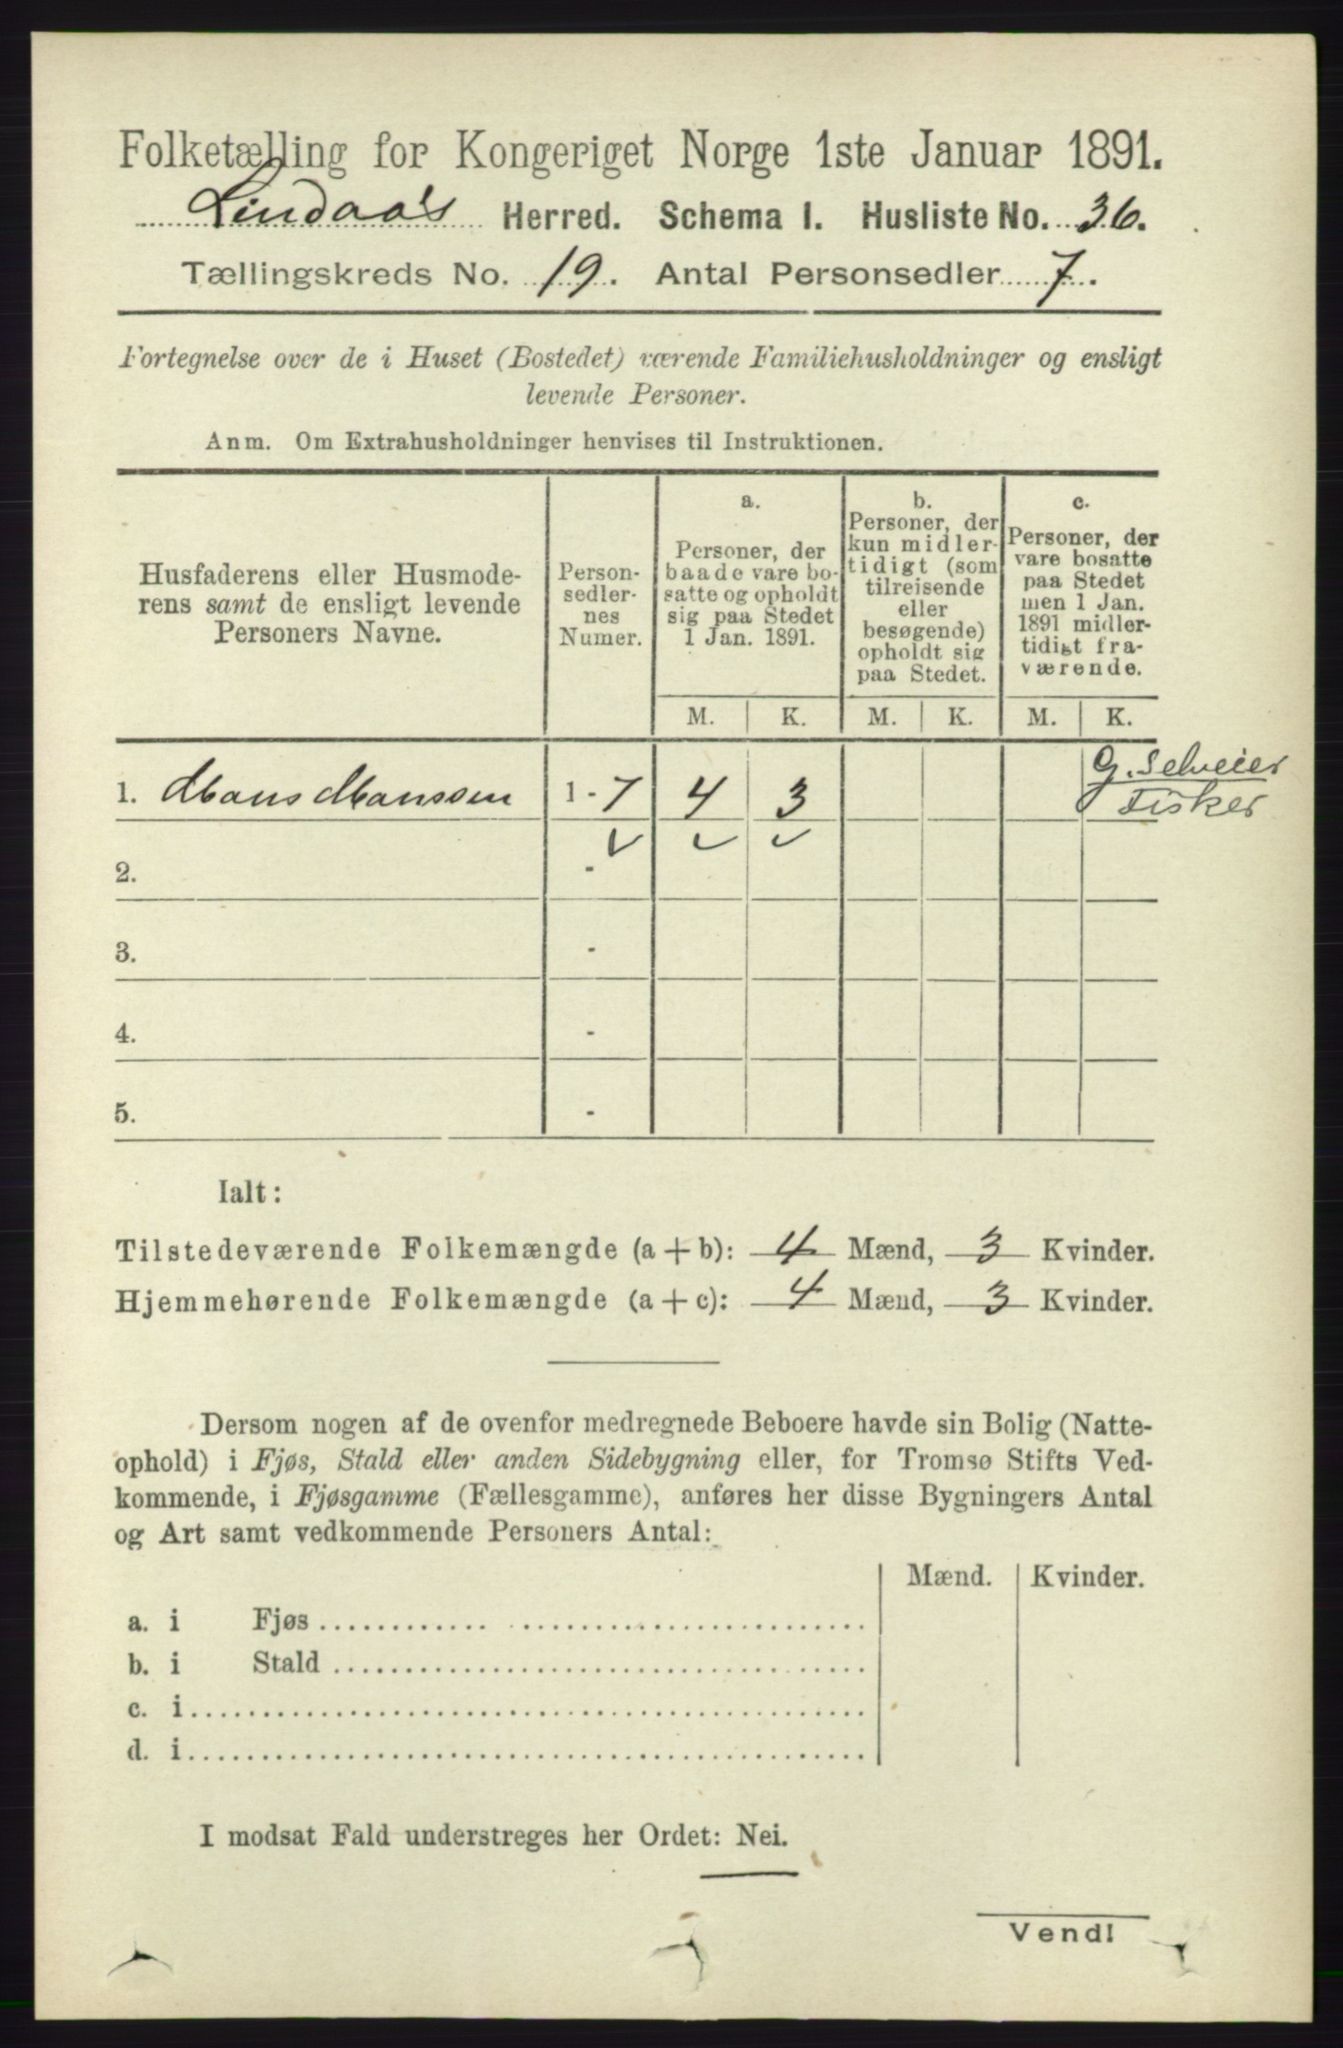 Folketælling for Kongeriget Norge 1ste Januar 1891.
Lindaas Herred. Schema I. Husliste No. 36.
Tællingskreds No. 19. Antal Personsedler 7.
Fortegnelse over de i Huset (Bostedet) værende Familiehusholdninger og ensligt
levende Personer.
Anm. Om Extrahusholdninger henvises til Instruktionen.
Husfaderens eller Husmode-
rens samt de ensligt levende
Personers Navne.
Person-
sedler-
nes
Numer.
a.
Personer, der
baade vare bo-
satte og opholdt
sig paa Stedet
1 Jan. 1891.
b.
Personer, der
kun midler-
tidigt (som
tilreisende
eller
besøgende)
opholdt sig
paa Stedet.
c.
Personer, der
vare bosatte
paa Stedet
men 1 Jan.
1891 midler-
tidigt fra-
værende.
M. K. M. K. M. K.
1. Mons Monssen 1 - 7 4 3 G. Selveier
Fisker
2. -
3. -
4. -
5. -
Ialt:
Tilstedeværende Folkemængde (a + b): 4 Mænd, 3 Kvinder.
Hjemmehørende Folkemængde (a + c): 4 Mænd, 3 Kvinder.
Dersom nogen af de ovenfor medregnede Beboere havde sin Bolig (Natte-
ophold) i Fjøs, Stald eller anden Sidebygning eller, for Tromsø Stifts Ved-
kommende, i Fjøsgamme (Fællesgamme), anføres her disse Bygningers Antal
og Art samt vedkommende Personers Antal:
Mænd. Kvinder.
a. i Fjøs
b. i Stald
c. i
d. i
I modsat Fald understreges her Ordet: Nei.
Vend!